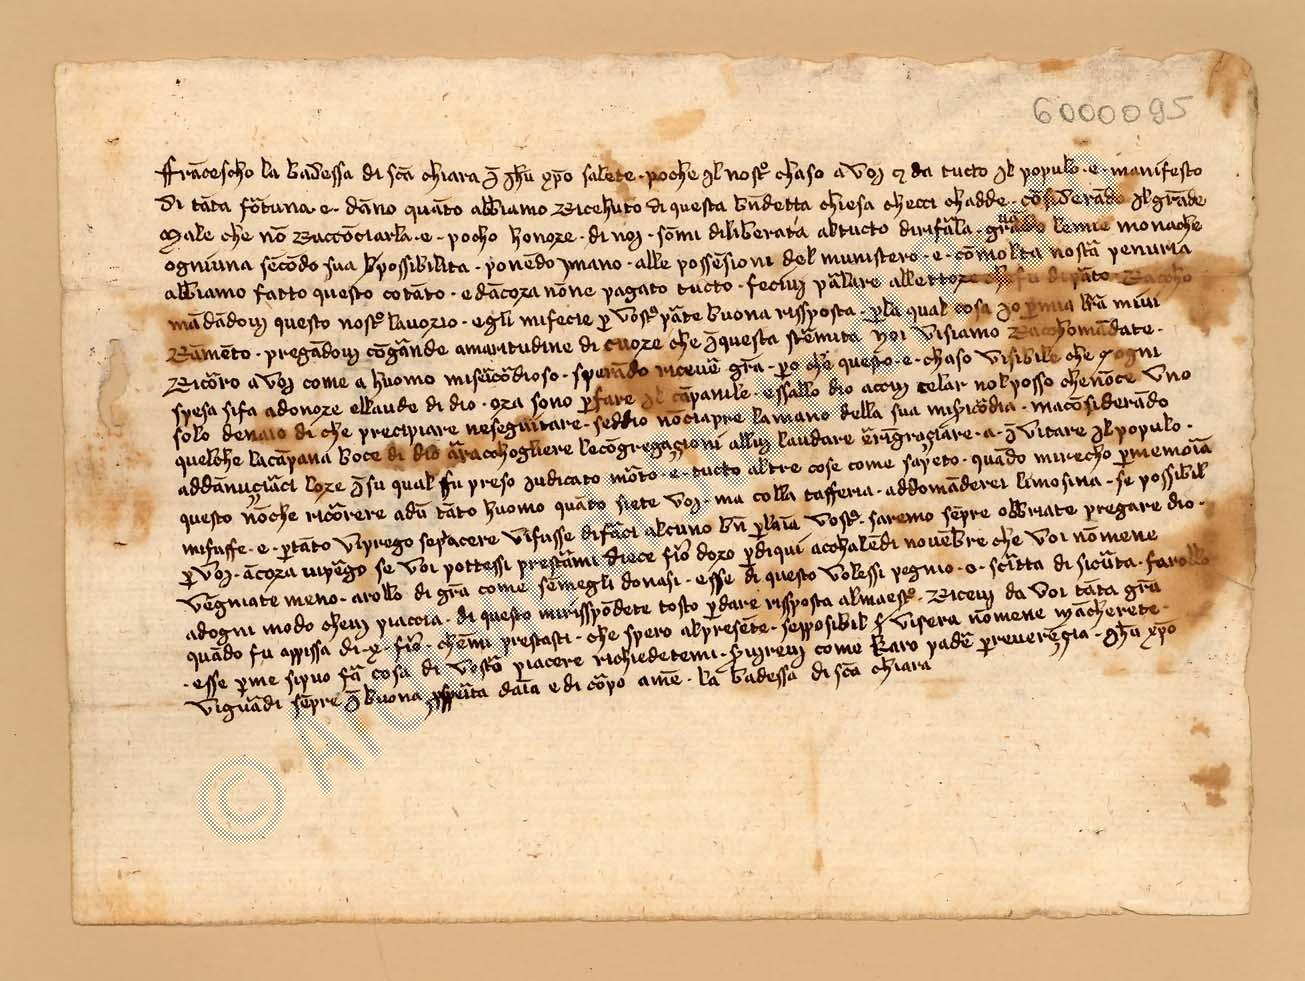 6000095
ffrācescho la badessa di scā chiara ī yhū xp̄o salete · poche il nostº chaso a voi et da tucto il popolo · e · manifesto
di tāta fōtuna · e · dāno quāto abbiamo ricehuto di questa bn̄detta chiesa checci chadde · cōsiderādo il grāde
male che nō racconciarla · e · pocho honore · di noi · sōmi diliberata altucto dirifāla · le mie monache
ogniuna secōdo sua possibilita · ponēdo mano · alle possesioni del munistero · e · cō molta nostā penuria
abbiamo fatto questo cotāto · e dācora nōne pagato tucto · feciui pālare allettore
mādādoui questo nostº lauorio · e gli mi fecie p vostª pāte buona rissposta · p la qual cosa io p mia lrā mi vi
ramēto · pregādoui cō grāde amaritudine di cuore che ī questa strēmita noi vi siamo racchomādate ·
ricōro a voi come a huomo misicōdioso · sperādo riceuē grā · pº che questo · e · chaso visibile che ogni
spesa si fa a donore e llaude di dio · ora sono p fare il cāpanile · e ssallo dio a cciui celar nol posso che nōce uno
solo denaio di che precipiare ne seguitare · se ddio nōci apre la mano della sua misicōdia · ma cōsiderādo
quelche la cāpana boce di dio āracchogliere le cōgregazioni allui laudare ērīgraziare · a · ī vitare il popolo ·
addānuziāci lore ī su qual fu preso iudicato mōto · e · tucto altre cose come sapeto · quādo mi recho p memoīa
questo nōche ricōrere adū tāto huomo quāto siete voi · ma colla tafferia · addomāderei limosina · se possibil
mi fusse · e · ptāto vi prego se piacere vi fusse di fāci alcuno bn̄ p lāīa vostª · saremo sēpre obbriate pregare dio ·
p voi · ācora vi pāgo se voi pottessi prestāmi diece fioº doro p di qui a cchalēdi novēbre che voi nō me ne
vēgniate meno · arollo di grā come se me gli donasi · e sse di questo volessi pegnio · o · scītta di sicūta · farollo
adogni modo cheui piaccia · di questo mi risspōdete tosto p dare rissposta al maestº · riceui da voi tāta grā
quādo fu appissa di · x · fioº · che mi prestasti · che spero al presēte · se ppossibil vi sera nō me ne mācherete ·
· e sse p me si puo fā cosa di vostō piacere richiedetemi · s̄uireui come karo padē p reuerēzia · yhū xp̄o
vi guādi sēpre ī buona psp̄ita dāīa e di cōpo amē · la badessa di scā chiara